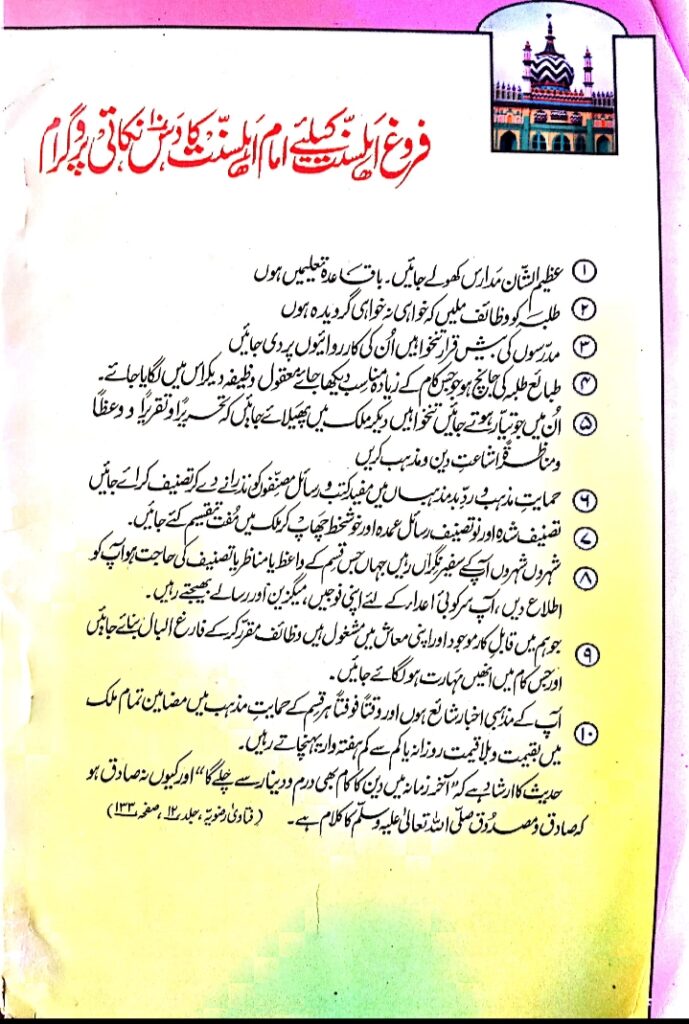 فروغ اہلسنّت کیلئے امام اہلسنّت کا دس نکاتی پروگرام
۱ عظیم الشّان مدارس کھولے جائیں۔ باقاعدہ تعلیمیں ہوں
۲ طلبہ کو وظائف ملیں کہ خواہی نہ خواہی گرویدہ ہوں
۳ مدرّسوں کی بیش قرار تنخواہیں اُن کی کارروائیوں پر دی جائیں
۴ طبائع طلبہ کی جانچ ہو جو جس کام کے زیادہ مناسب دیکھا جائے معقول وظیفہ دیکر اس میں لگایا جائے۔
۵ اُن میں جو تیار ہوتے جائیں تنخواہیں دیکر ملک میں پھیلائے جائیں کہ تحریراً و تقریراً و وعظاً
و مناظرۃً اشاعتِ دین و مذہب کریں
۶ حمایتِ مذہب و ردِّ بدمذہباں میں مفید کتب و رسائل مصنّفوں کو نذرانے دے کر تصنیف کرائے جائیں
۷ تصنیف شدہ اور نو تصنیف رسائل عمدہ اور خوشخط چھاپ کر ملک میں مُفت تقسیم کئے جائیں۔
۸ شہروں شہروں آپ کے سفیر نگراں رہیں جہاں جس قسم کے واعظ یا مناظر یا تصنیف کی حاجت ہو آپ کو
اطلاع دیں، آپ سرکوبی اعداء کے لئے اپنی فوجیں، میگزین اور رسالے بھیجتے رہیں۔
۹ جو ہم میں قابلِ کار موجود اور اپنی معاش میں مشغول ہیں وظائف مقرّر کر کے فارغ البال بنائے جائیں
اور جس کام میں انھیں مہارت ہو لگائے جائیں۔
۱۰ آپ کے مذہبی اخبار شائع ہوں اور وقتاً فوقتاً ہر قسم کے حمایتِ مذہب میں مضامین تمام ملک
میں بقیمت و بلا قیمت روزانہ یا کم سے کم ہفتہ وار پہنچاتے رہیں۔
حدیث کا ارشاد ہے کہ "آخر زمانہ میں دین کا کام بھی درم و دینار سے چلے گا" اور کیوں نہ صادق ہو
کہ صادق و مصدُوق صلّی اللہ تعالیٰ علیہ وسلّم کا کلام ہے۔ (فتاویٰ رضویّہ، جلد ۱۲، صفحہ ۱۳۳)